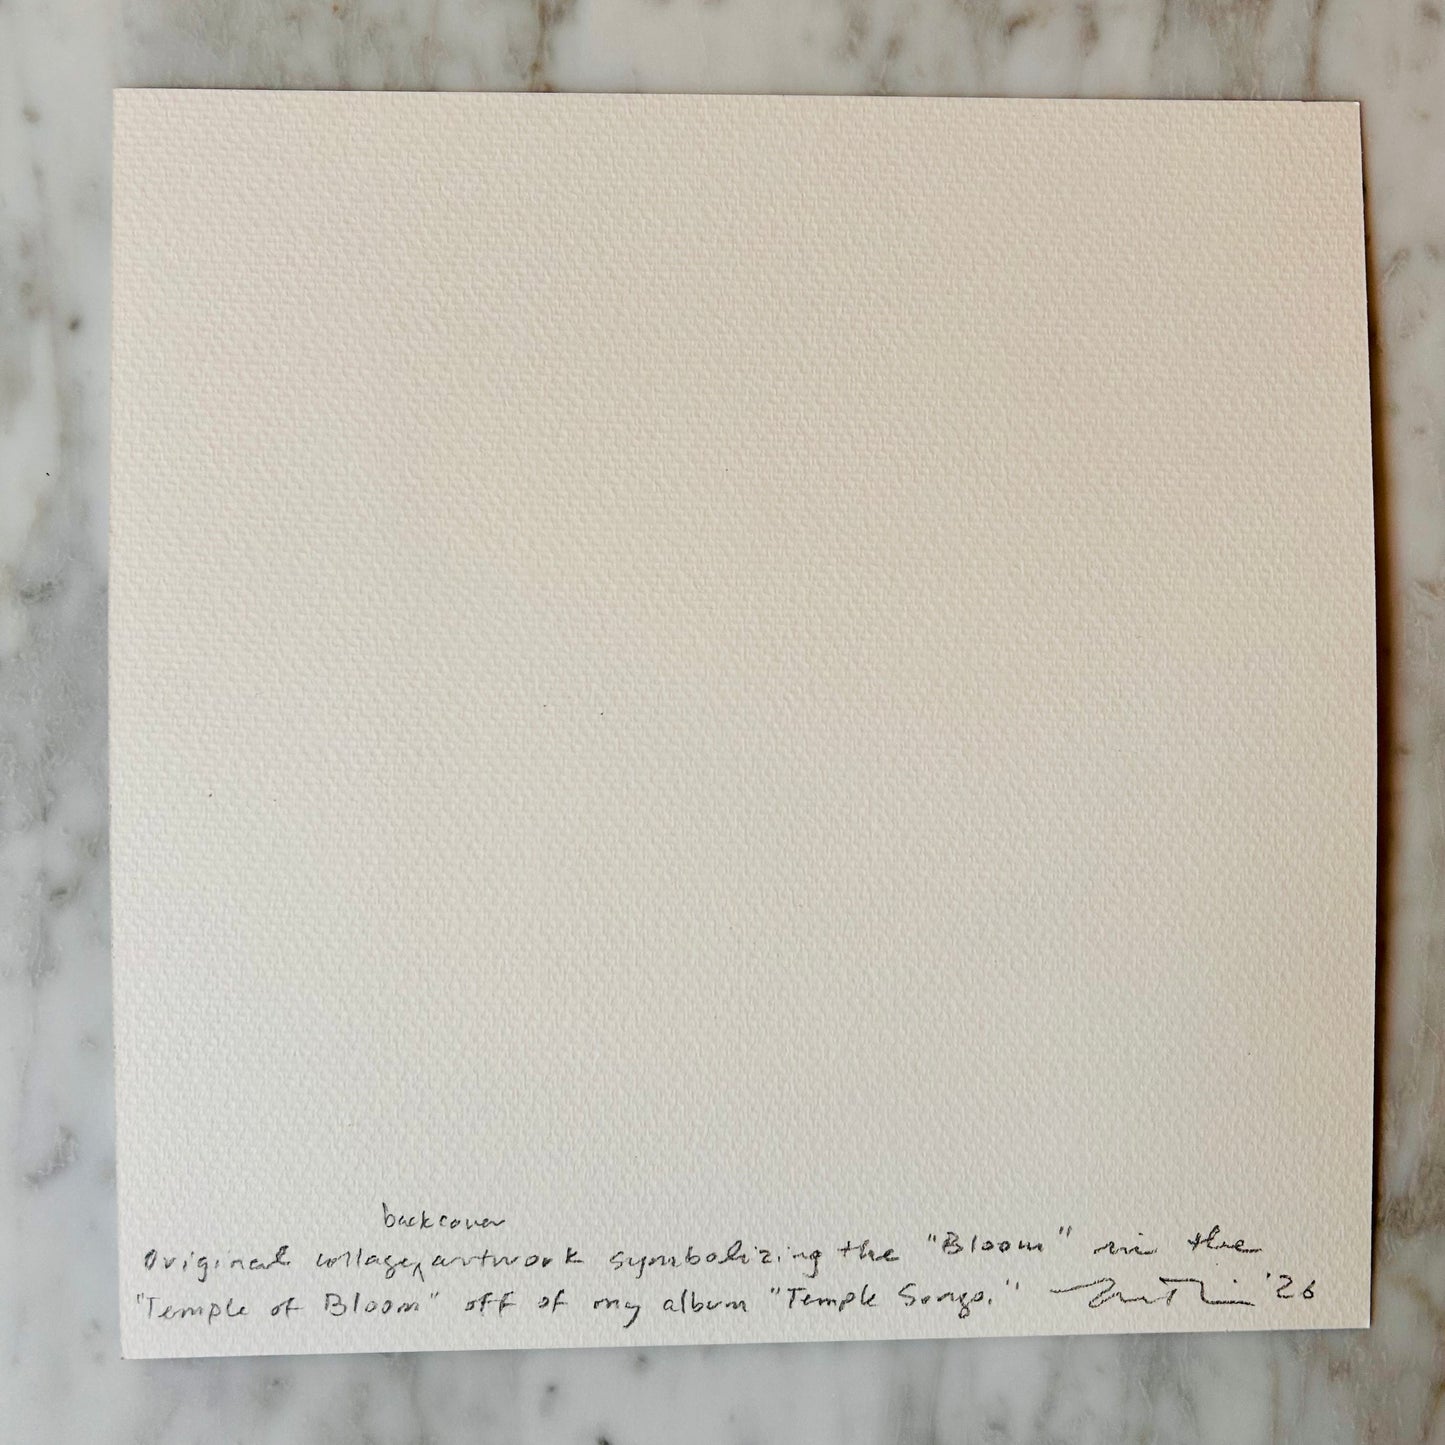 back cover
Original collage ‸ artwork symbolizing the "Bloom" in the
"Temple of Bloom" off of my album "Temple Songs." '26